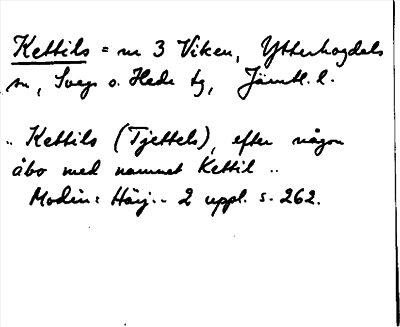 Kettils = nr 3 Viken, Ytterhogdals
sn, Svegs o. Hede tg, Jämtl. l.
.. Kettils (Tjettels), efter någon
åbo med namnet Kettil ..
Modin: Härj.. 2 uppl. s. 262.